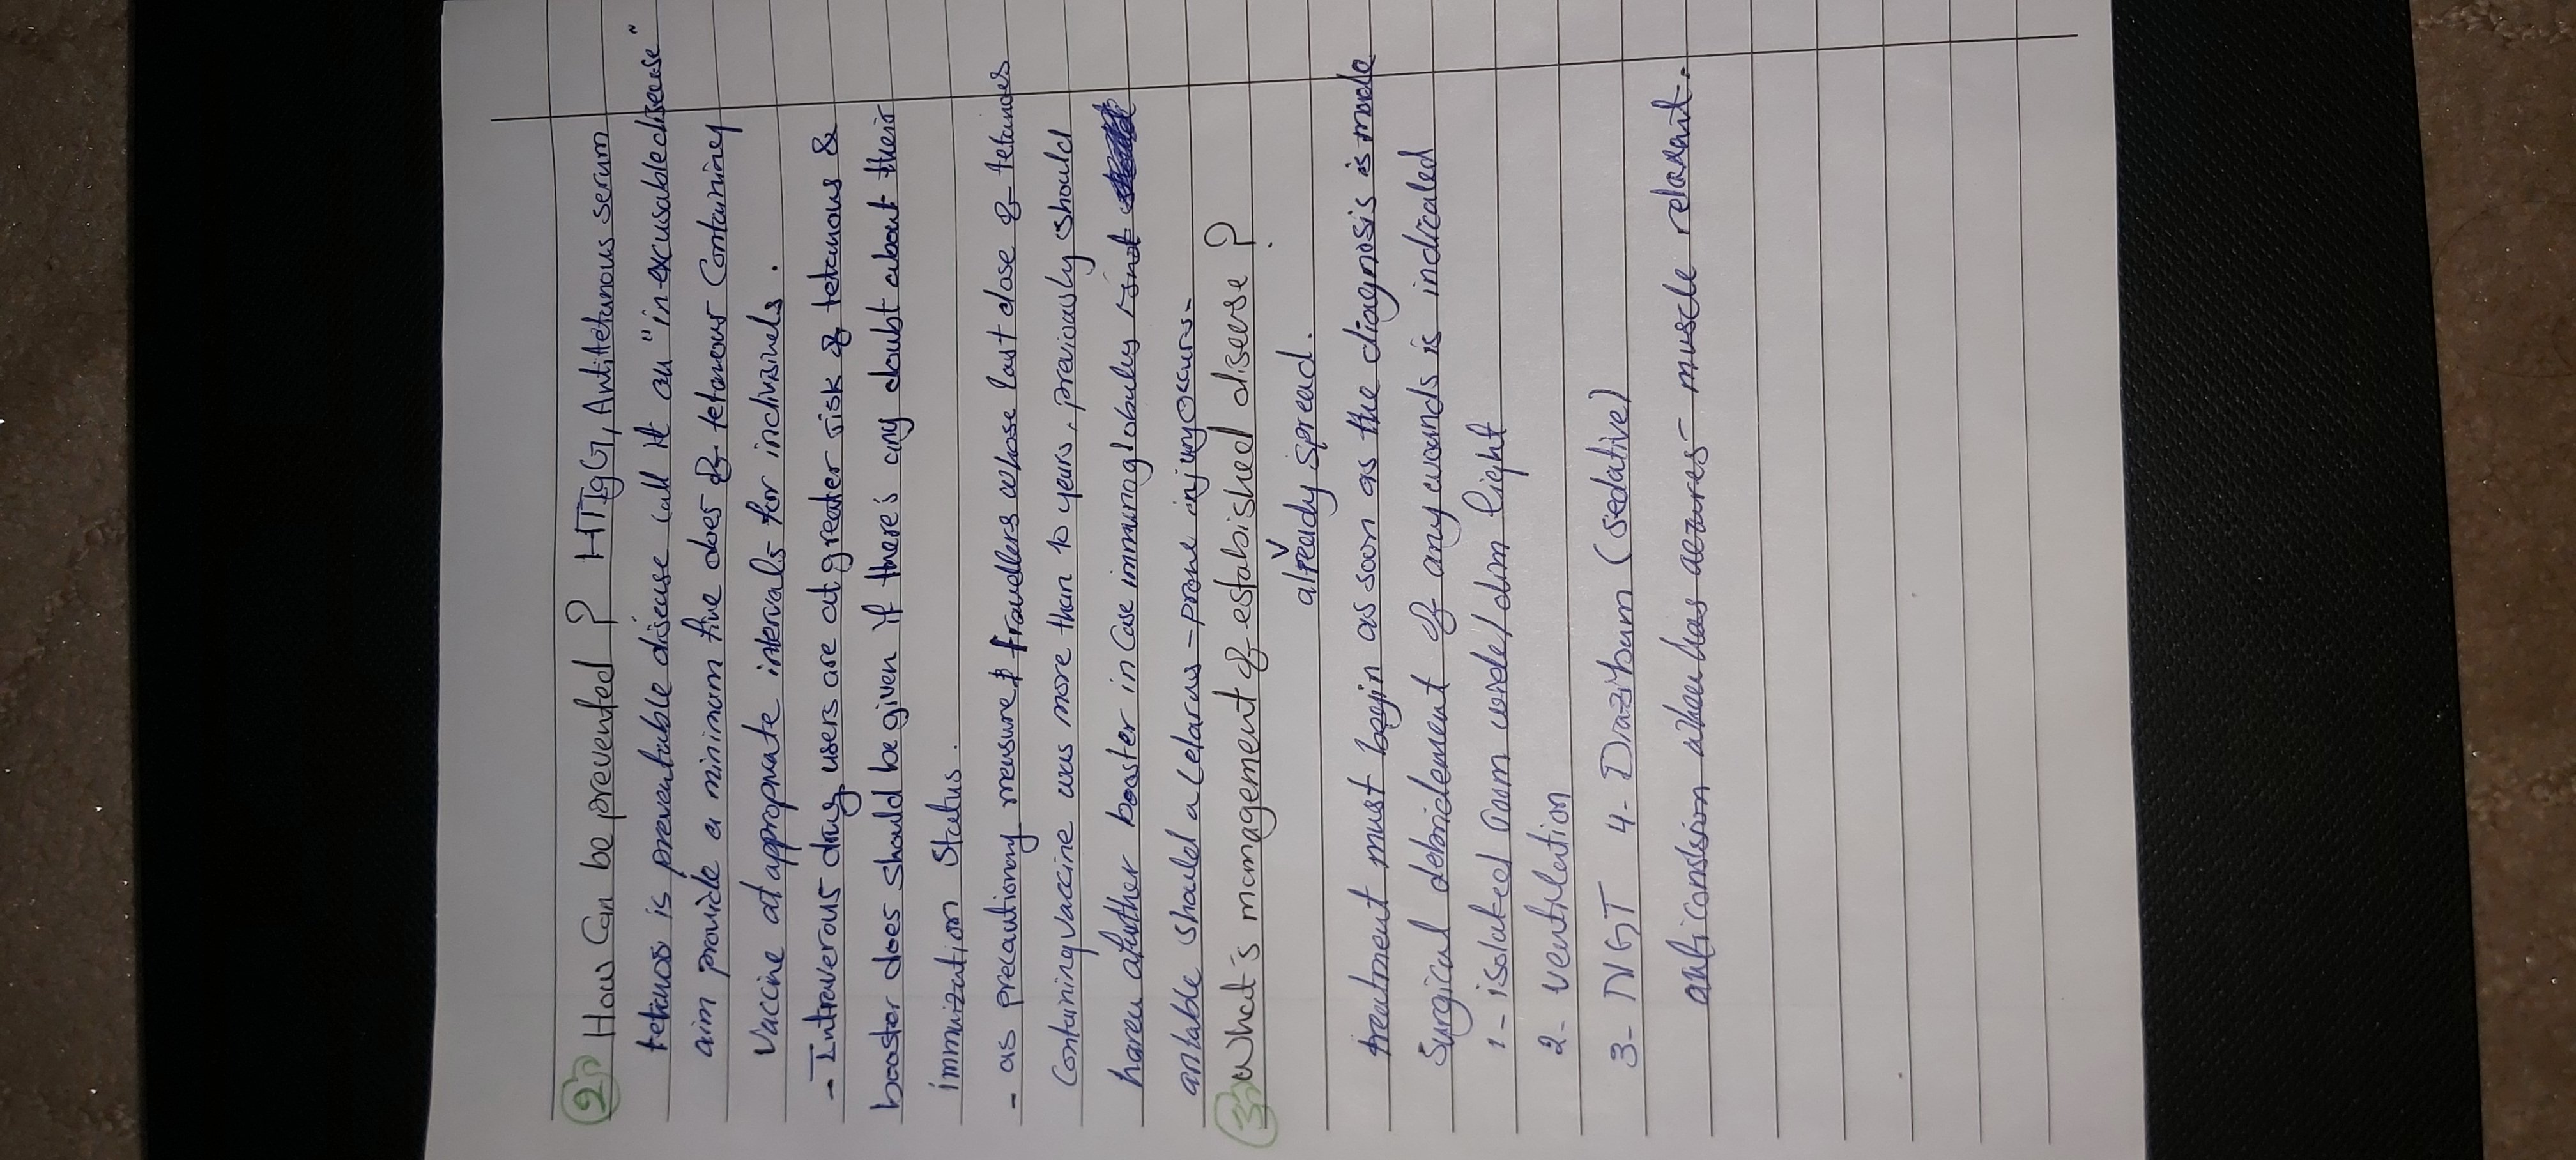 2) How Can be prevented ? HTIgG, Antitetanous serum
tetanos is preventable disease call it an "in excusable disease"
aim provide a minimum five does of tetanous Containing
Vaccine at appropriate intervals for indivisinels.
- Intraverous drug users are at greater risk of tetanous &
booster does should be given if there's any doubt about their
immunization Status.
- as precautionary measure travellers whose last dose of tetanoes
Containing vaccine was more than 10 years, previously should
haven afurther booster in Case immunoglobuley isnot
avilable should a tetarus-prone injury occurs-
3) What's management of estabished disease ?
already spread.
treatment must begin as soon as the diagnosis is made
Surgical debridement of any wounds is indicated
1- isolated room wide/dim light
2- ventilation
3- NGT 4- Diazibam (sedative)
anticonvlsion muscle relaxant.